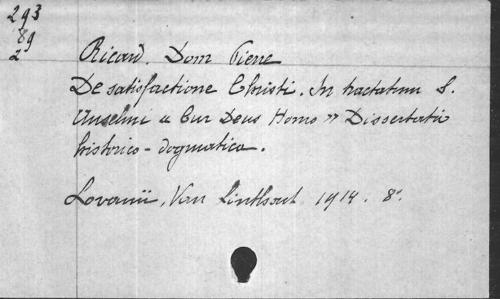 293
89
2
Ricard. Dom Pierre
De satisfactione Christi. In tractatum S.
Anselmi « Cur Deus Homo » Dissertatio
historico-dogmatica.
Lovanii, Van Linthout 1914. 8°.